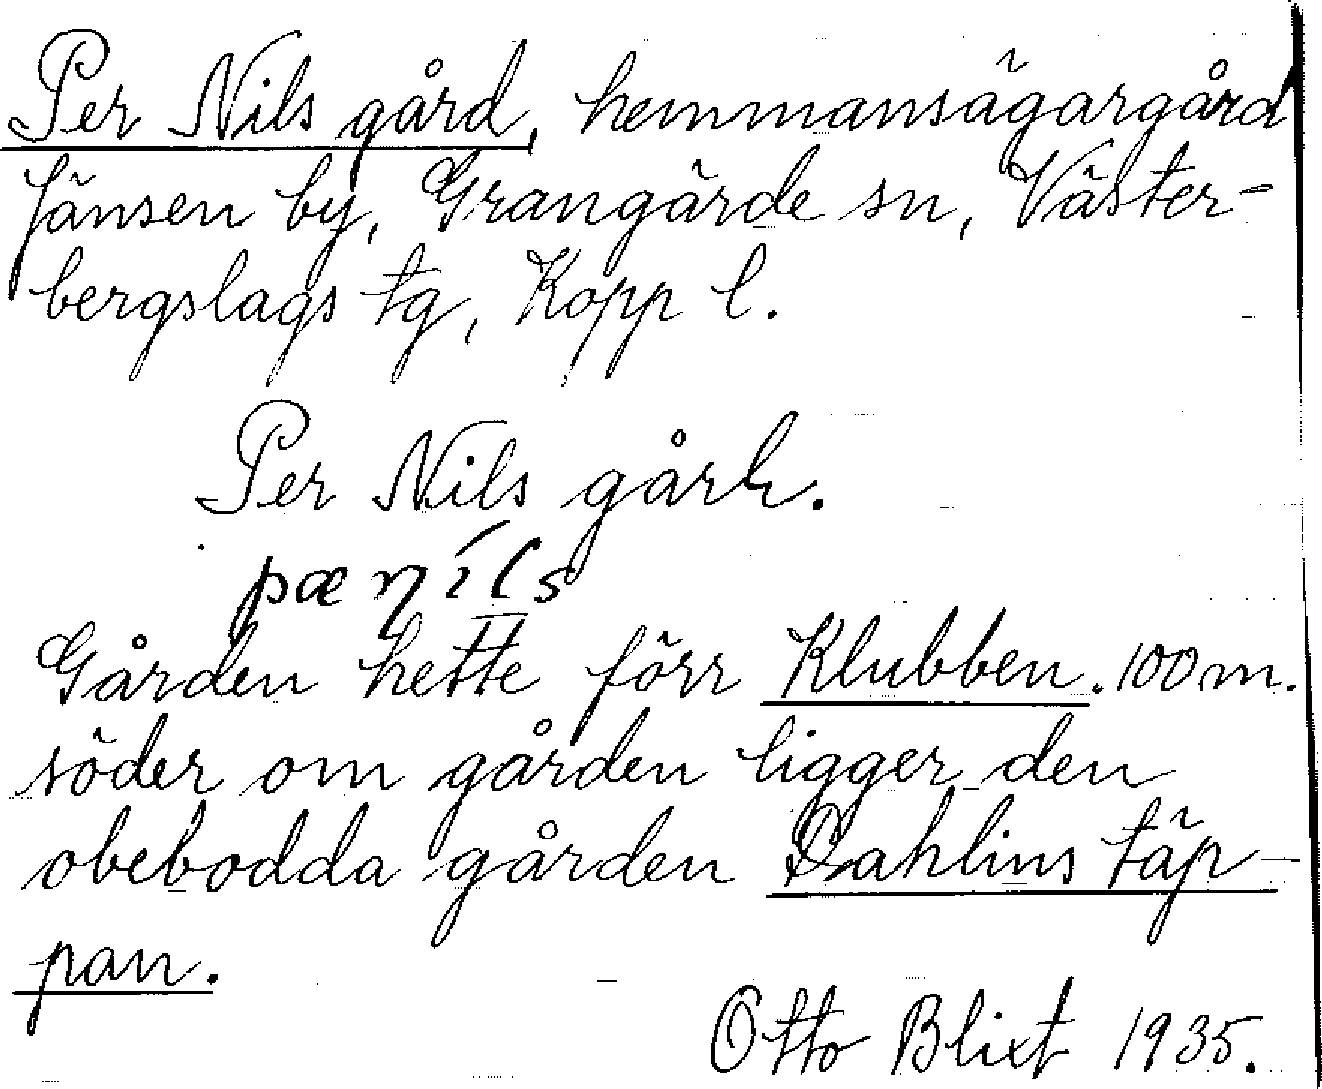 Per Nils gård, hemmansägargård
Jänsen by, Grangärde sn, Väster-
bergslags tg, Kopp l.
Per Nils gårk.
pæ ɳíls
Gården hette förr Klubben. 100 m.
söder om gården ligger den
obebodda gården Dahlins täp-
pan.
Otto Blixt 1935.